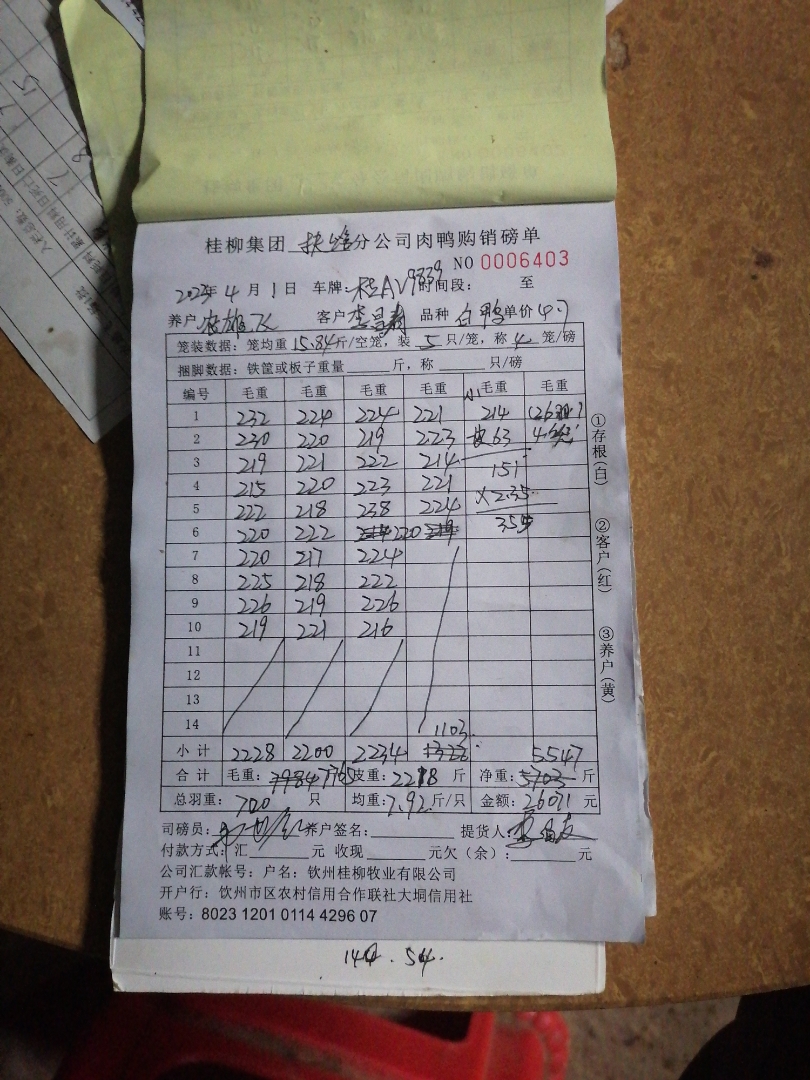 桂柳集团 扶绥 分公司肉鸭购销磅单
NO 0006403
2023年 4 月 1 日 车牌: 桂AV9839 时间段: 至
养户 客户 品种 白鸭 单价 4.7
笼装数据: 笼均重 15.84 斤/空笼, 装 5 只/笼, 称 4 笼/磅
捆脚数据: 铁筐或板子重量 斤, 称 只/磅
编号 毛重 毛重 毛重 毛重 小毛重 毛重
1 232 224 224 221 214
2 230 220 219 223 63
3 219 221 222 214 151
4 215 220 223 221 ×2.35
5 222 218 238 224 355
6 220 222 220
7 220 217 224
8 225 218 222
9 226 219 226
10 219 221 216
11
12
13
14
小计 2228 2200 2234 1103 5547
合计 毛重: 7765 皮重: 2218 斤 净重: 5703 斤
总羽重: 700 只 均重: 7.92 斤/只 金额: 26071 元
司磅员: 养户签名: 提货人:
付款方式: 汇 元 收现 元欠(余): 元
公司汇款帐号: 户名: 钦州桂柳牧业有限公司
开户行: 钦州市区农村信用合作联社大垌信用社
账号: 8023 1201 0114 4296 07
①存根(白)
②客户(红)
③养户(黄)
144.54.